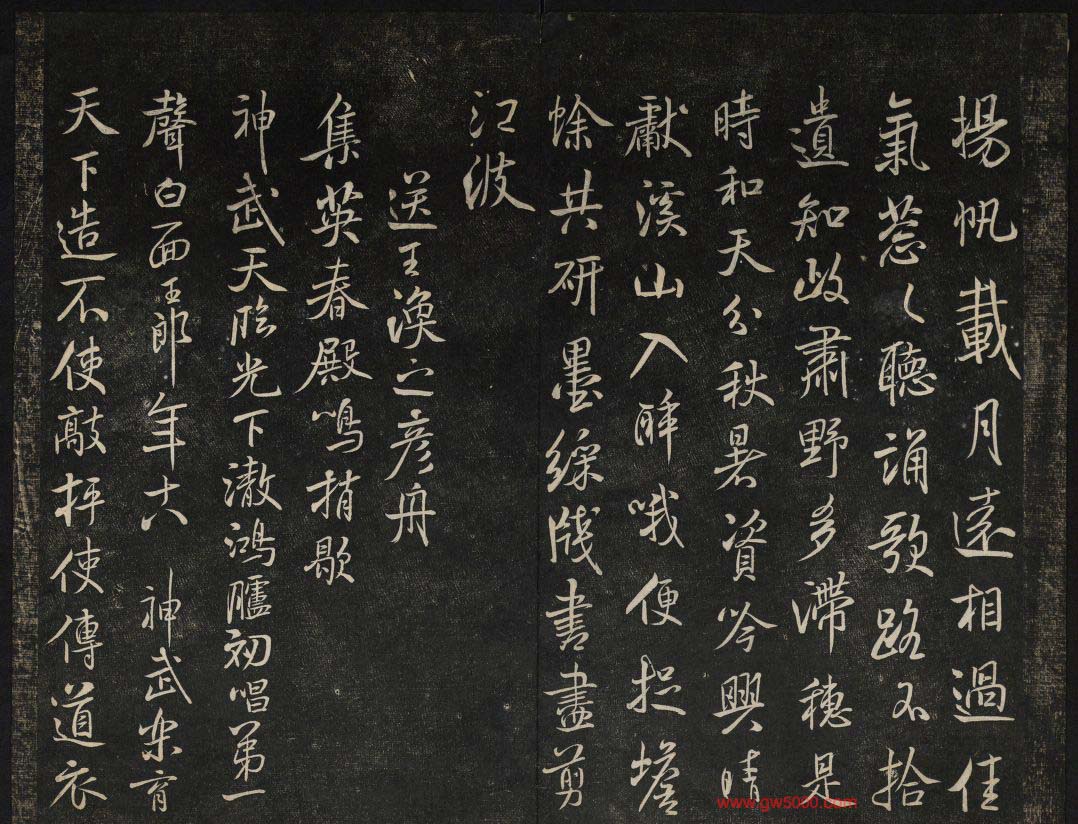 揚帆載月遠相過佳
氣葱〻聽誦歌路不拾
遺知政肅野多滯穗是
時和天分秋暑資吟興晴
獻溪山入醉哦便捉蟾
蜍共研墨綵牋書盡剪
江波
送王渙之彥舟
集英春殿鳴捎歇
神武天臨光下澈鴻臚初唱第一
聲白面王郎年十八 神武樂育
天下造不使敲枰使傳道衣
www.gw5000.com